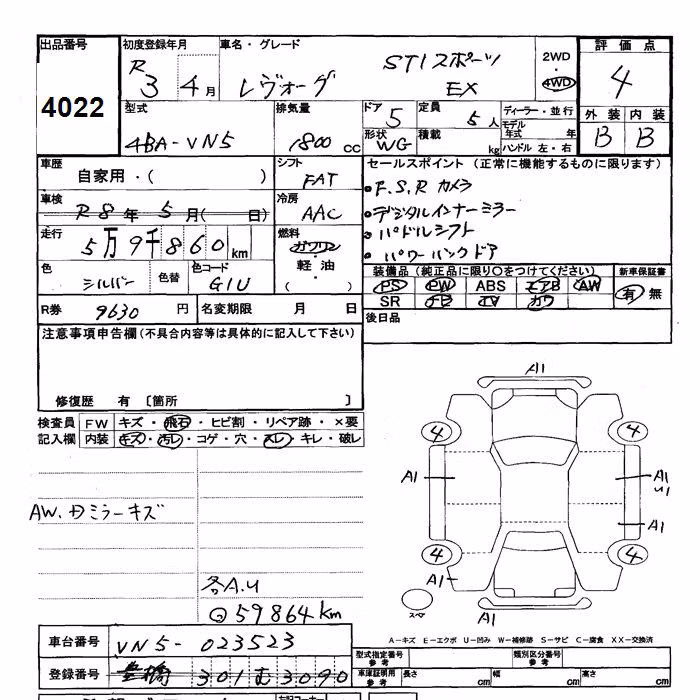 出品番号
4022
初度登録年月
R3 4月
車名・グレード
レヴォーグ STI スポーツ EX
2WD
4WD
評価点
4
外装 内装
B B
型式
4BA-VN5
排気量
1800 cc
ドア 5
形状 WG
定員 5人
積載 kg
ディーラー・並行
モデル年式 年
ハンドル 左・右
車歴
自家用・( )
シフト
FAT
車検
R8年5月( 日)
冷房
AAC
走行
5万9千860km
燃料
ガソリン
軽油
( )
色
シルバー
色替
色コード
G1U
R券 9630円
名変期限 月 日
セールスポイント(正常に機能するものに限ります)
・F.S.R カメラ
・デジタルインナーミラー
・パドルシフト
・パワーバックドア
装備品(純正品に限り○をつけてください)
PS PW ABS エアB AW
SR ナビ TV カワ
新車保証書
有 無
後日品
注意事項申告欄(不具合内容等は具体的に記入して下さい)
修復歴 有 〔箇所 〕
検査員記入欄
FW キズ・飛石・ヒビ割・リペア跡・×要
内装 キズ・汚レ・コゲ・穴・スレ・キレ・破レ
AW.ミラーキズ
各A.U
59864km
A1
4 4
A1 A1
U1
A1
4 4
A1
A1
スペア
A-キズ E-エクボ U-凹み W-補修跡 S-サビ C-腐食 XX-交換済
車台番号 VN5-023523
登録番号 豊橋 301 む 3090
型式指定番号 参考
類別区分番号 参考
車庫証明用 参考 長さ cm 幅 cm 高さ cm